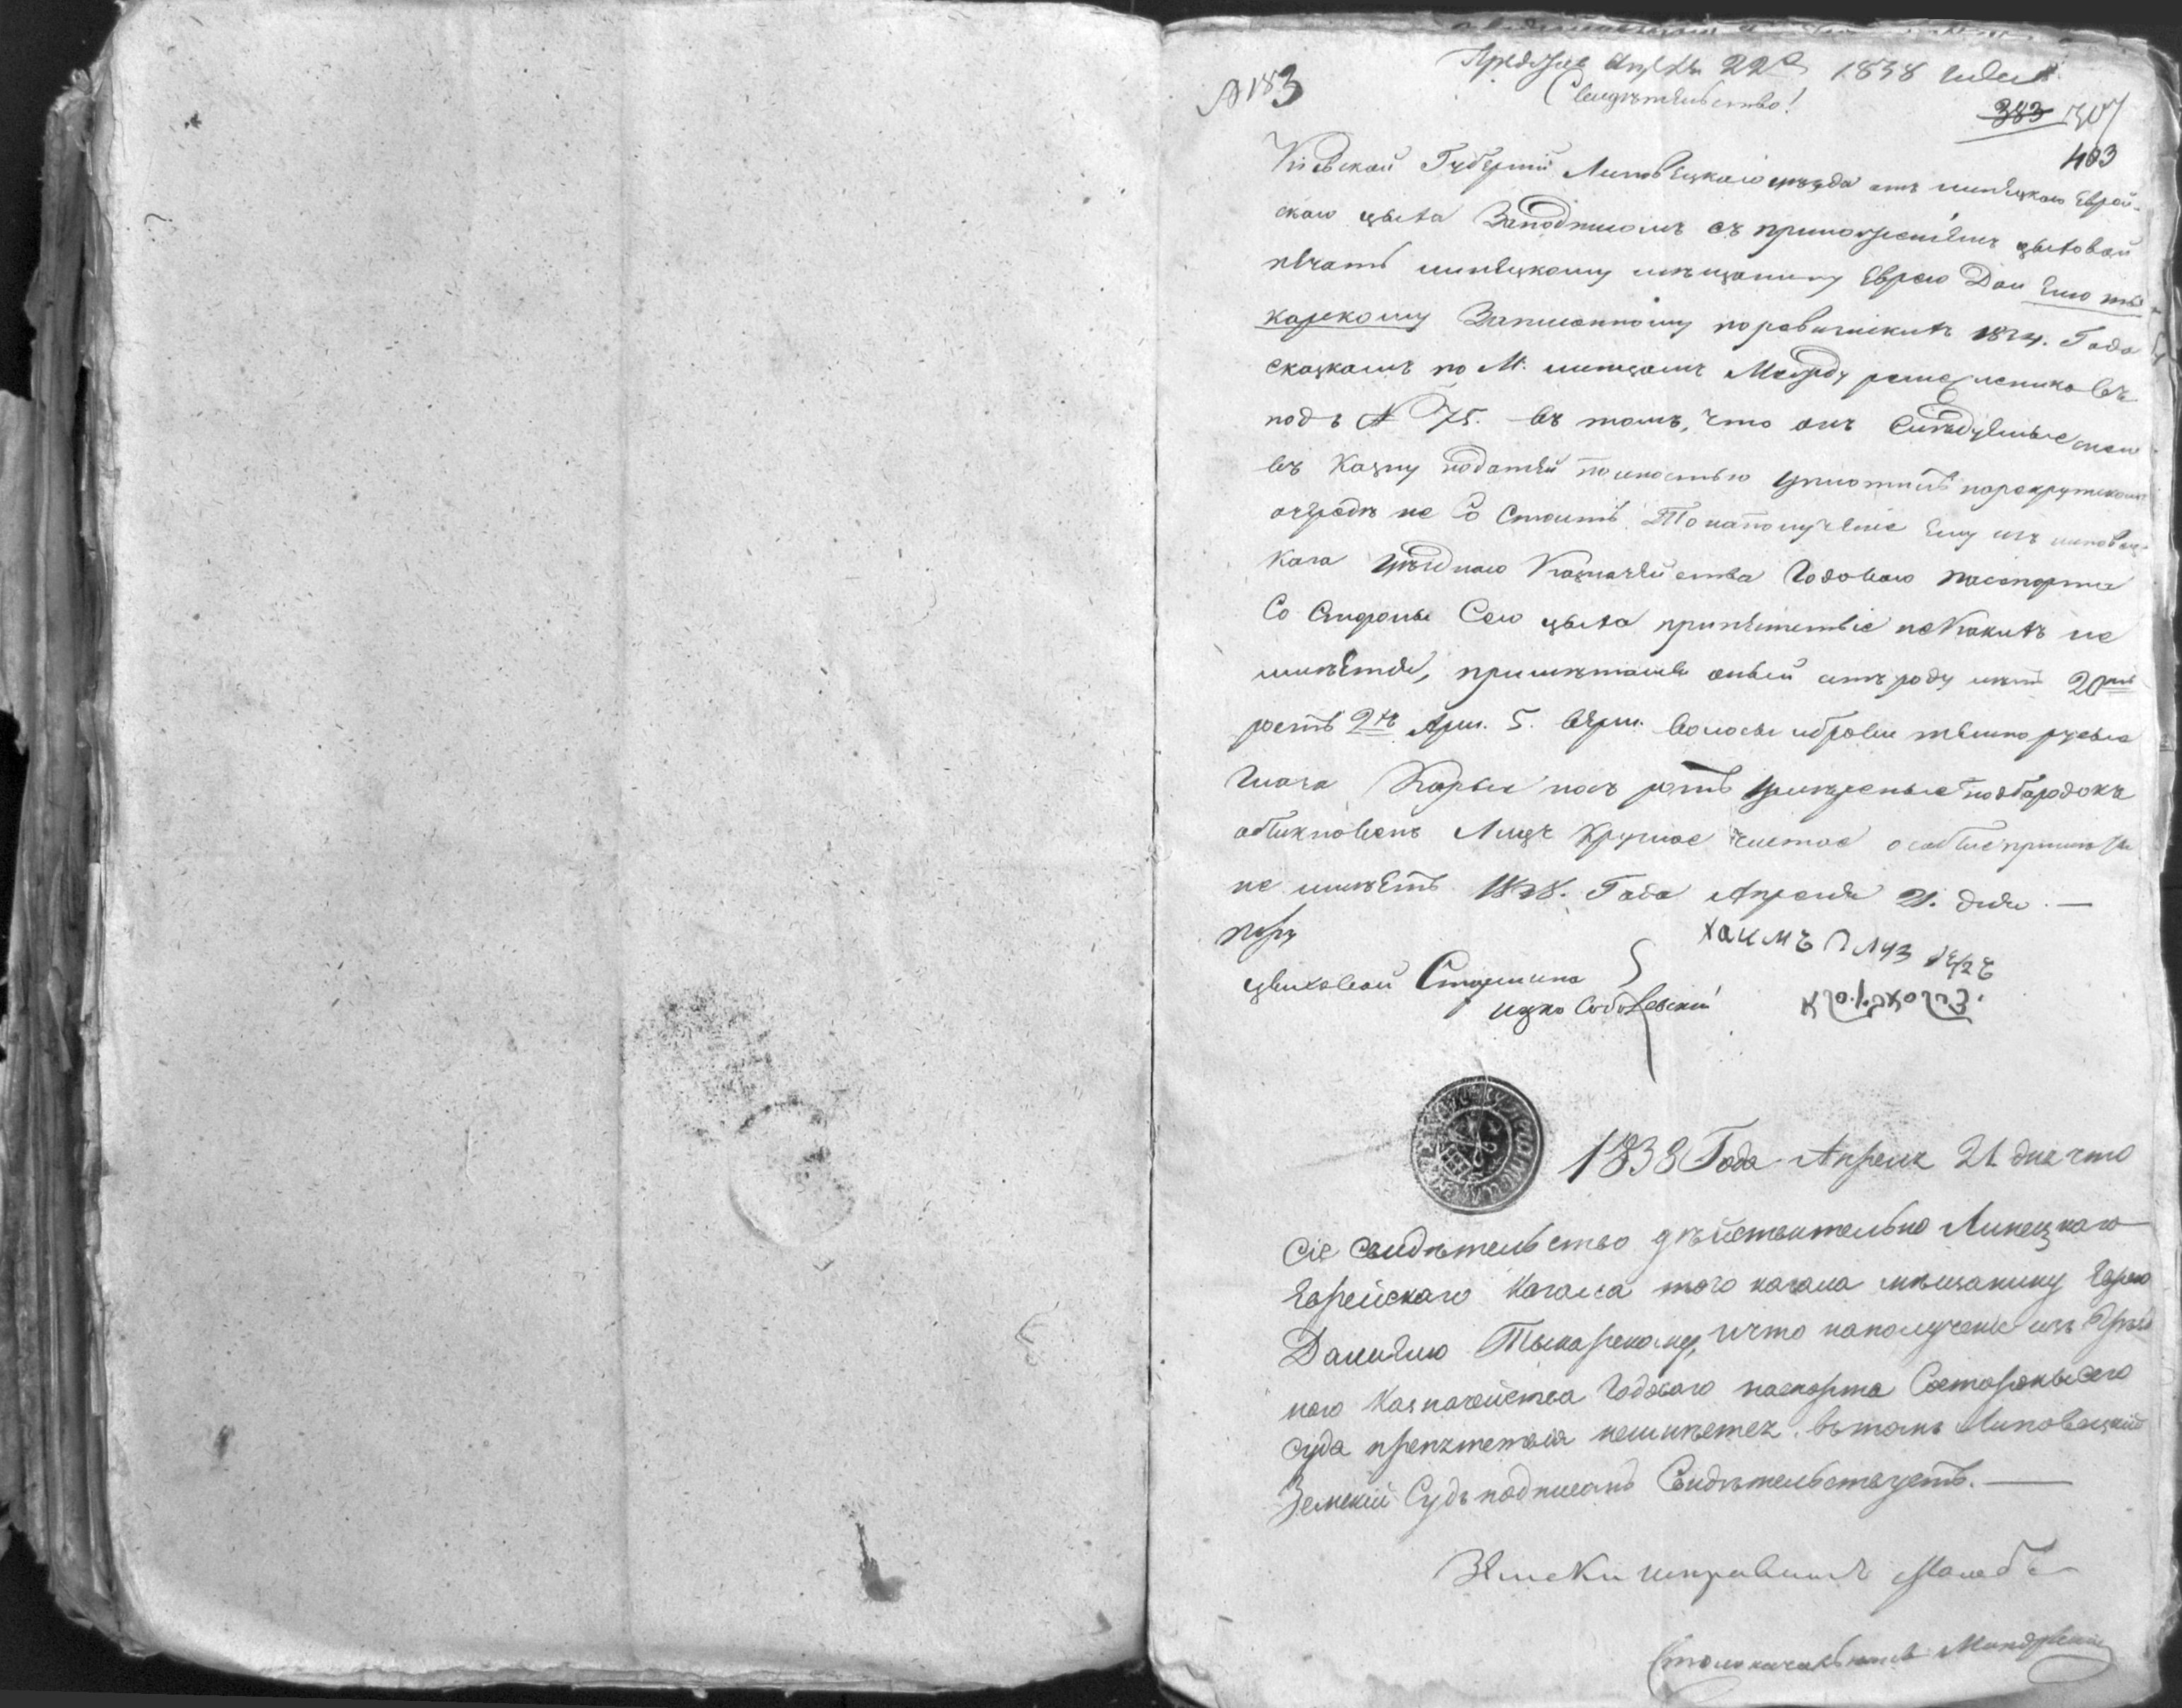 № 183
22 1838 года
Свидѣтельство!
383
403
Кіевской Губерніи Липовецкаго уѣзда отъ липецкаго Еврей-
скаго цѣха Заподписомъ съ приложеніемъ цѣховой
печати липецкому мѣщанину Еврею Дан
карскому Записанному поревизскихъ Года
сказкахъ по М. липцамъ Между ремеслениковъ
подъ № 75. въ томъ, что онъ Слѣдуемые
въ Казну податей полностью уплотилъ
очередѣ не Состоитъ Тонаполученіе Ему изъ липовец-
каго уѣзднаго Казначейства Годоваго паспорта
Со Стороны Сего цѣха припетствіе неКакихъ не
имѣетъя, примѣтами оный отъроду лѣтъ 20
ростъ 2хъ Арш. 5. верш. волосы иброви темнорусые
Глаза Карые носъ ротъ умѣреные подбародокъ
обыкновенъ Лице Круглое чистое особые
не имѣетъ 1838. Года Апреля 21. дня. —
Хаимъ
цѣховой Старшина
ицко Соболевский
1838 Года Апреля 21 дня что
Сіе свидѣтельство дѣйствительно Липецкаго
Еврейскаго Кагала того кагала мѣщанину Еврею
Данилю Тыкарскому, ичто наполученіе изъ Уѣзд
наго Казначейства Годоваго паспорта Состоронысего
суда препятствія неимѣетея. втомъ Липовецкій
Земскій Судъ подписавъ Свидѣтельствуетъ. —